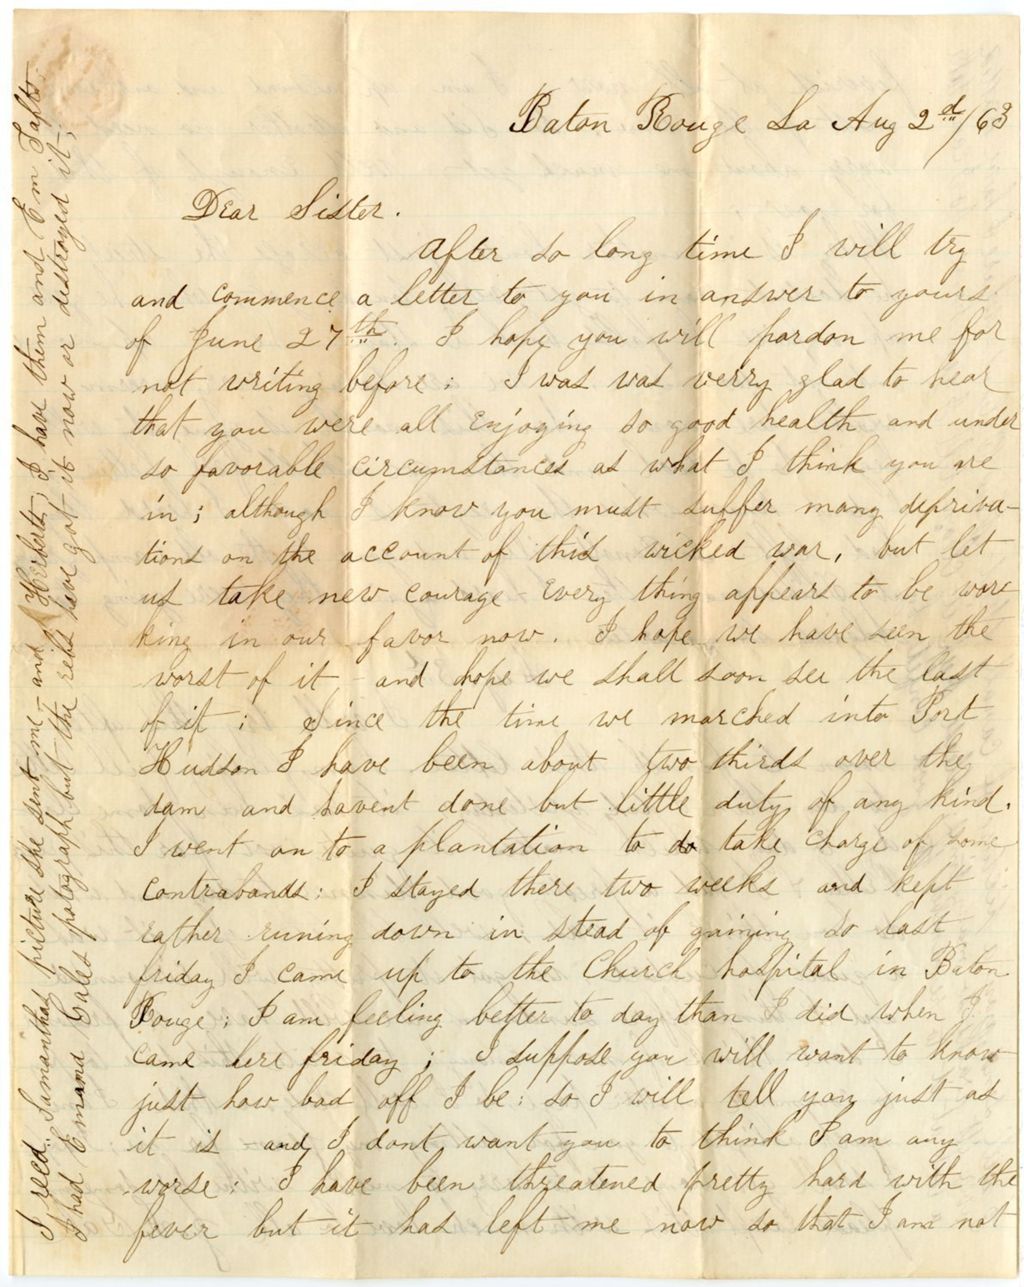 Baton Rouge La Aug 2d/63
Dear Sister.
After so long time I will try
and commence a letter to you in answer to yours
of June 27th. I hope you will pardon me for
not writing before; I was was verry glad to hear
that you were all enjoying so good health and under
so favorable circumstances as what I think you are
in; although I know you must suffer many depriva-
tions on the account of this wicked war, but let
us take new courage every thing appears to be wor
king in our favor now. I hope we have seen the
worst of it - and hope we shall soon see the last
of it; Since the time we marched into Port
Hudson I have been about two thirds over the
dam and havent done but little duty of any kind.
I went on to a plantation to do take charge of some
contrabands: I stayed there two weeks and kept
rather runing down in stead of gaining so last
friday I came up to the Church hospital in Baton
Rouge; I am feeling better to day than I did when I
came here friday; I suppose you will want to know
just how bad off I be: so I will tell you just as
it is - and I dont want you to think I am any
worse: I have been threatened pretty hard with the
fever but it has left me now so that I am not
I recd. Samanthas picture she sent me - and Herberts, I have them and Em Tafts.
I had Emma Cales potograph but the rebs have got it now or destroyed it;